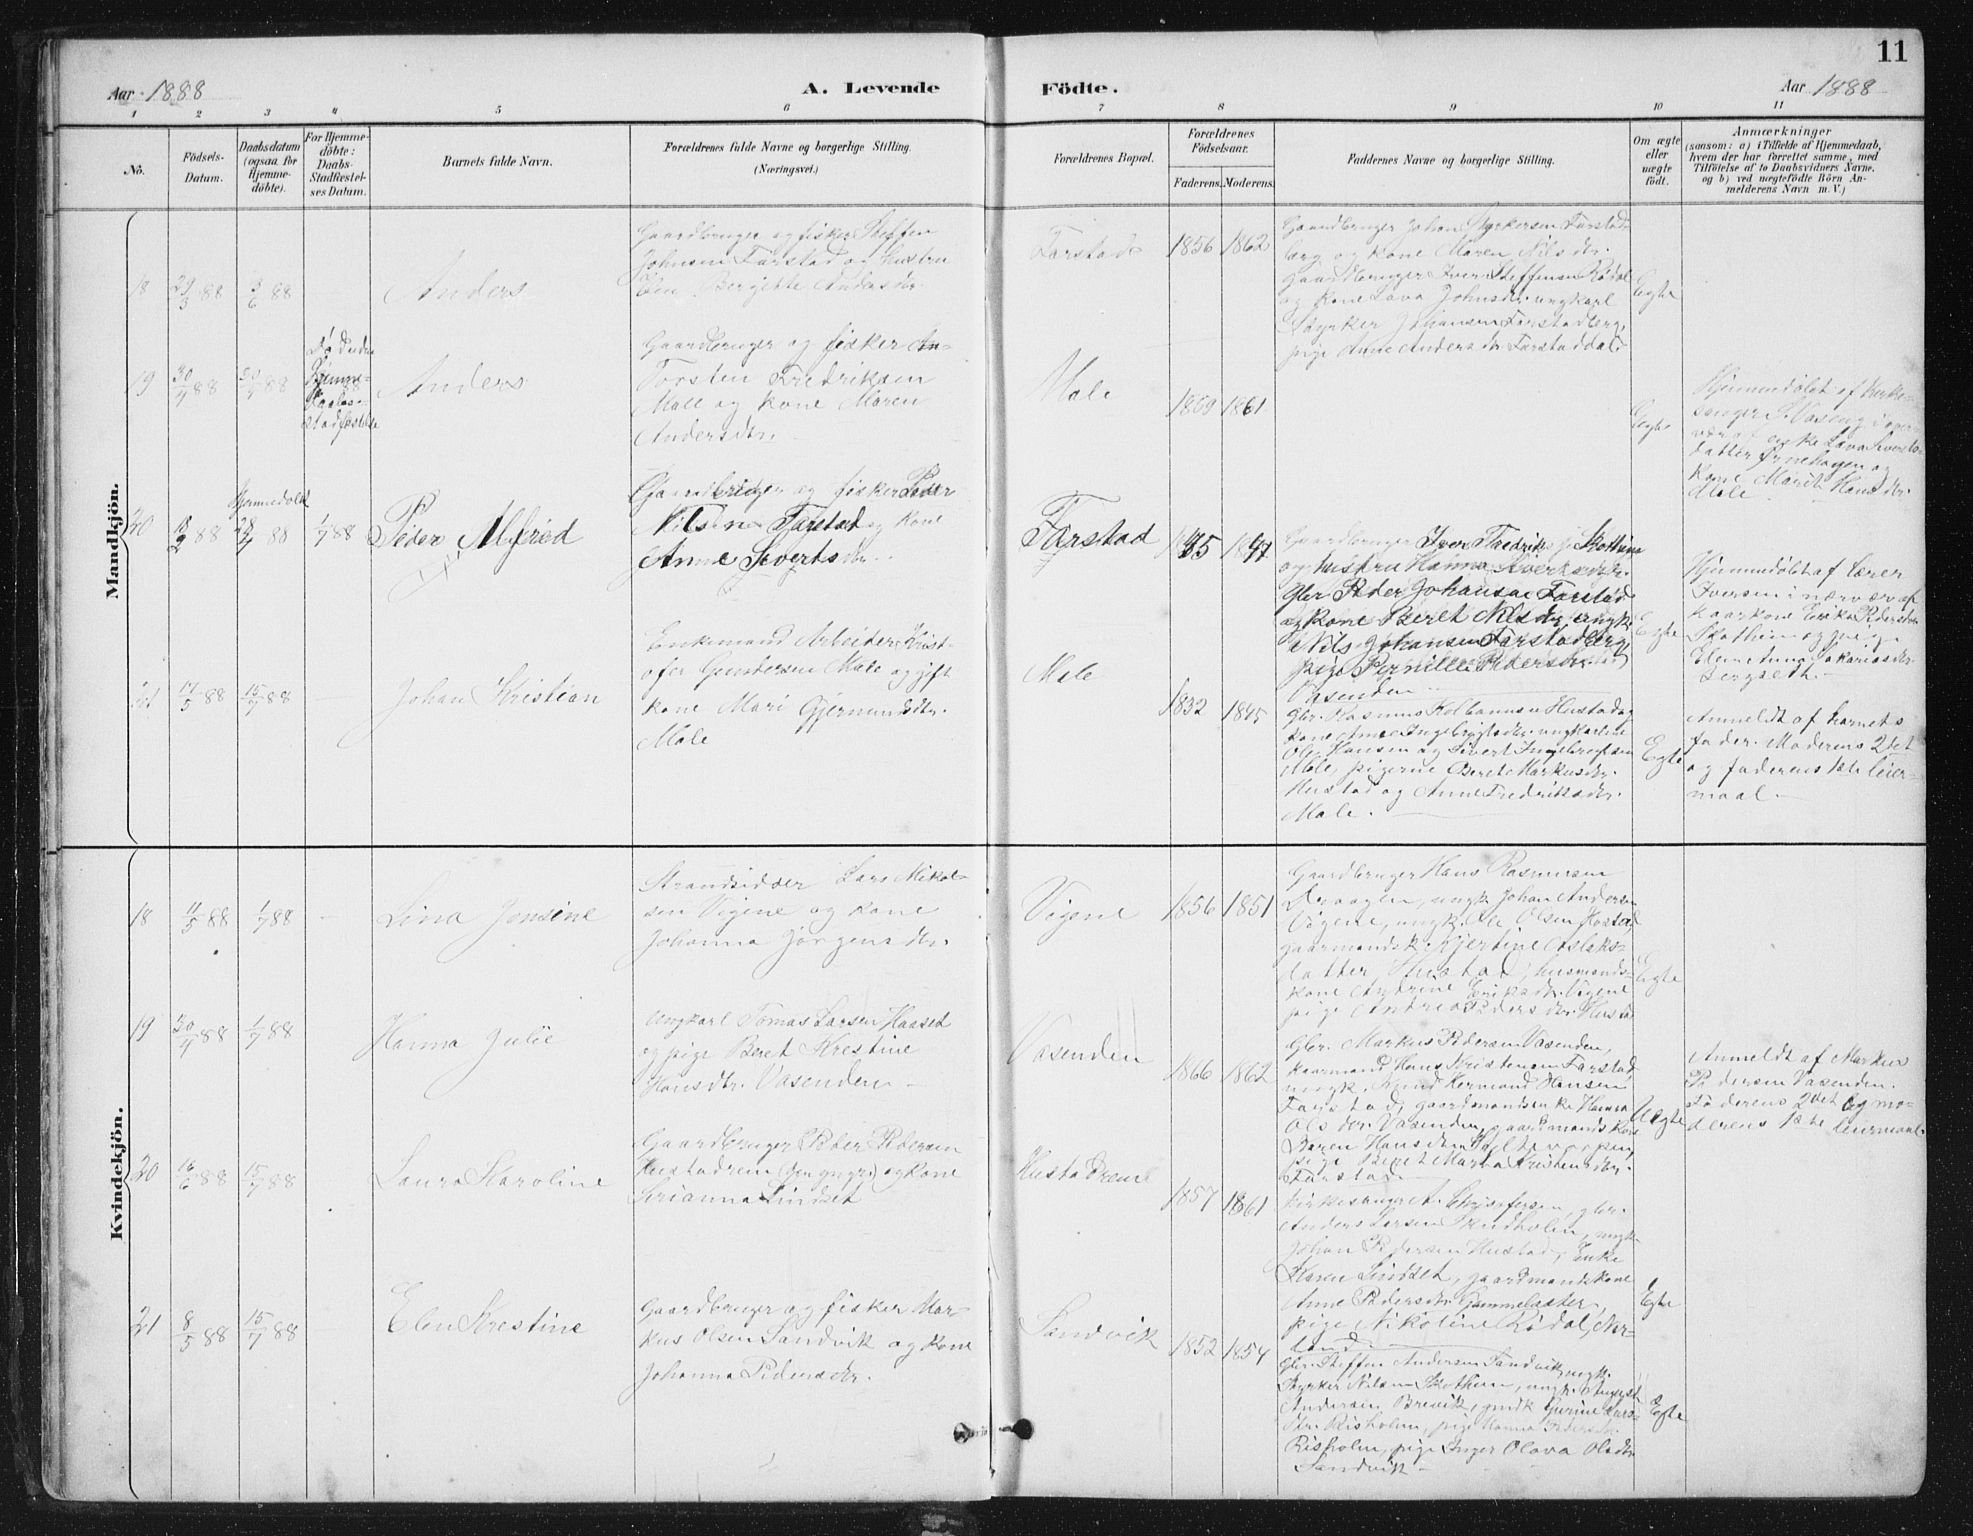 11
Aar 1888
A. Levende
Födte.
Aar 1888
1 2 3 4 5 6 7 8 9 10 11
No.
Födsels-
Datum.
Daabsdatum
(ogsaa for
Hjemme-
döbte).
For Hjemme-
döbte:
Daabs-
Stadfæstel-
ses Datum.
Barnets fulde Navn.
Forældrenes fulde Navne og borgerlige Stilling.
(Næringsvei.)
Forældrenes Bopæl.
Forældrenes
Födselsaar.
Faderens. Moderens.
Faddernes Navne og borgerlige Stilling.
Om ægte
eller
uægte
födt.
Anmærkninger
(saasom: a) i Tilfælde af Hjemmedaab,
hvem der har forrettet samme, med
Tilföielse af to Daabsvidners Navne.
og b) ved uægtefödte Börn An-
melderens Navn m. V.)
Mandkjön.
18
29/5 88
3/6 88
Anders
Gaardbruger og fisker Steffen
Johnsen Farstad og hustru
Bergitte Andersdtr.
Farstad
1856 1862
Gaardbruger Johan Styrkersen Farstad-
berg og kone Maren Nilsdtr.
Gaardbruger Iver Steffensen Rödal
og kone Lava Johnsdtr. ungkarl
Styrker Johansen Farstadberg,
pige Anne Andersdtr. Farstaddal.
Egte
19
30/4 88
30/4 88
Död uden
Hjemme-
daabs-
stadfæstelse
Anders
Gaardbruger og fisker
Torsten Fredriksen
Male og kone Maren
Andersdtr.
Male
1861
Egte
Hjemmedöbt af kirke-
sanger
datter
kone Marit Hansdtr.
Male
20
88
Hjemmedöbt
88
1/7 88
Peder Alfred
Gaardbruger og fisker Peder
Nilsen Farstad og kone
Anne Sivertsdtr.
Farstad
Gaardbruger Iver Fredriks Skotheim
og hustru Hanna
Gbr Peder Johansen Farstad
og kone Beret Nilsdtr, ungk.
Nils Johansen Farstadberg,
pige Pernille Pedersdtr.
Vasenden
Egte
Hjemmedöbt af lærer
Iversen i nærvær af
kaarkone Erika Pedersdtr
Skotheim og pige
Elen Anna Sakariasdtr.
21
17/5 88
15/7 88
Johan Kristian
Enkemand Arbeider Krist-
ofer Gundersen Male og gift
kone Mari Gjermundsdtr.
Male
Male
1832 1845
Gbr. Rasmus Kolbansen Hustad og
kone Anne Ingebrigtsdtr. ungkarlene
Ole Hansen og Sivert Ingebrigtsen
Male, pigerne Beret Markusdtr.
Hustad og Anne Fredriksdtr.
Male.
Egte
Anmeldt af barnets
fader. Moderens 2det
og faderens 1ste leier-
maal.
Kvindekjön.
18
11/5 88
1/7 88
Lina Jensine
Strandsidder Lars Mikal-
sen Vigene og kone
Johanna Jörgensdtr.
Vigene
1856 1851
Gaardbruger Hans Rasmussen
ungk. Johan Andersen
Vigene, ungk. Ole Olsen Hustad
gaarmandsk. Kjerstine Aslaks-
datter, Hustad, husmands-
kone Andrine Eriksdtr. Vigene
pige Andrea Pedersdtr. Hustad
Egte
19
30/4 88
1/7 88
Hanna Julie
Ungkarl Tomas Larsen Haaset
og pige Beret Krestine
Hansdtr. Vasenden
Vasenden
1866 1862
Gbr. Markus Pedersen Vasenden,
kaarmand Hans Kristensen Farstad,
ungk. Knud Hermand Hansen
Farstad, gaardmandsenke Hanna
Olsdtr. Vasenden, gaardmandskone
Karen Hansdtr.
pige Beret Marta Kristensdtr.
Farstad
Uægte
Anmeldt af Markus
Pedersen Vasenden.
Faderens 2det og mo-
derens 1ste leiermaal.
20
16/6 88
15/7 88
Laura Karoline
Gaardbruger Peder Pedersen
Hustadrem (den yngre) og kone
Serianna Lindset
Hustadrem
1857 1861
Kirkesanger A. Kristofersen, gbr.
Anders Larsen Skudholm, ungk.
Johan Pedersen Hustad, Enke
Karen Lindset, gaardmandskone
Anne Pedersdtr. Gammelsæter,
pige Nikoline Rödal,
Egte
21
8/5 88
15/7 88
Elen Krestine
Gaardbruger og fisker Mar-
kus Olsen Sandvik og kone
Johanna Pedersdtr.
Sandvik
1852 1854
Gbr. Steffen Andersen Sandvik, ungk.
Styrker Nilsen Skotheim, ungk. August
Andersen Brevik, gmdk Gurine Lars-
dtr. Risholm, pige Hanna Pedersdtr.
Risholm, pige Inger Olava Olsdtr.
Sandvik
Egte